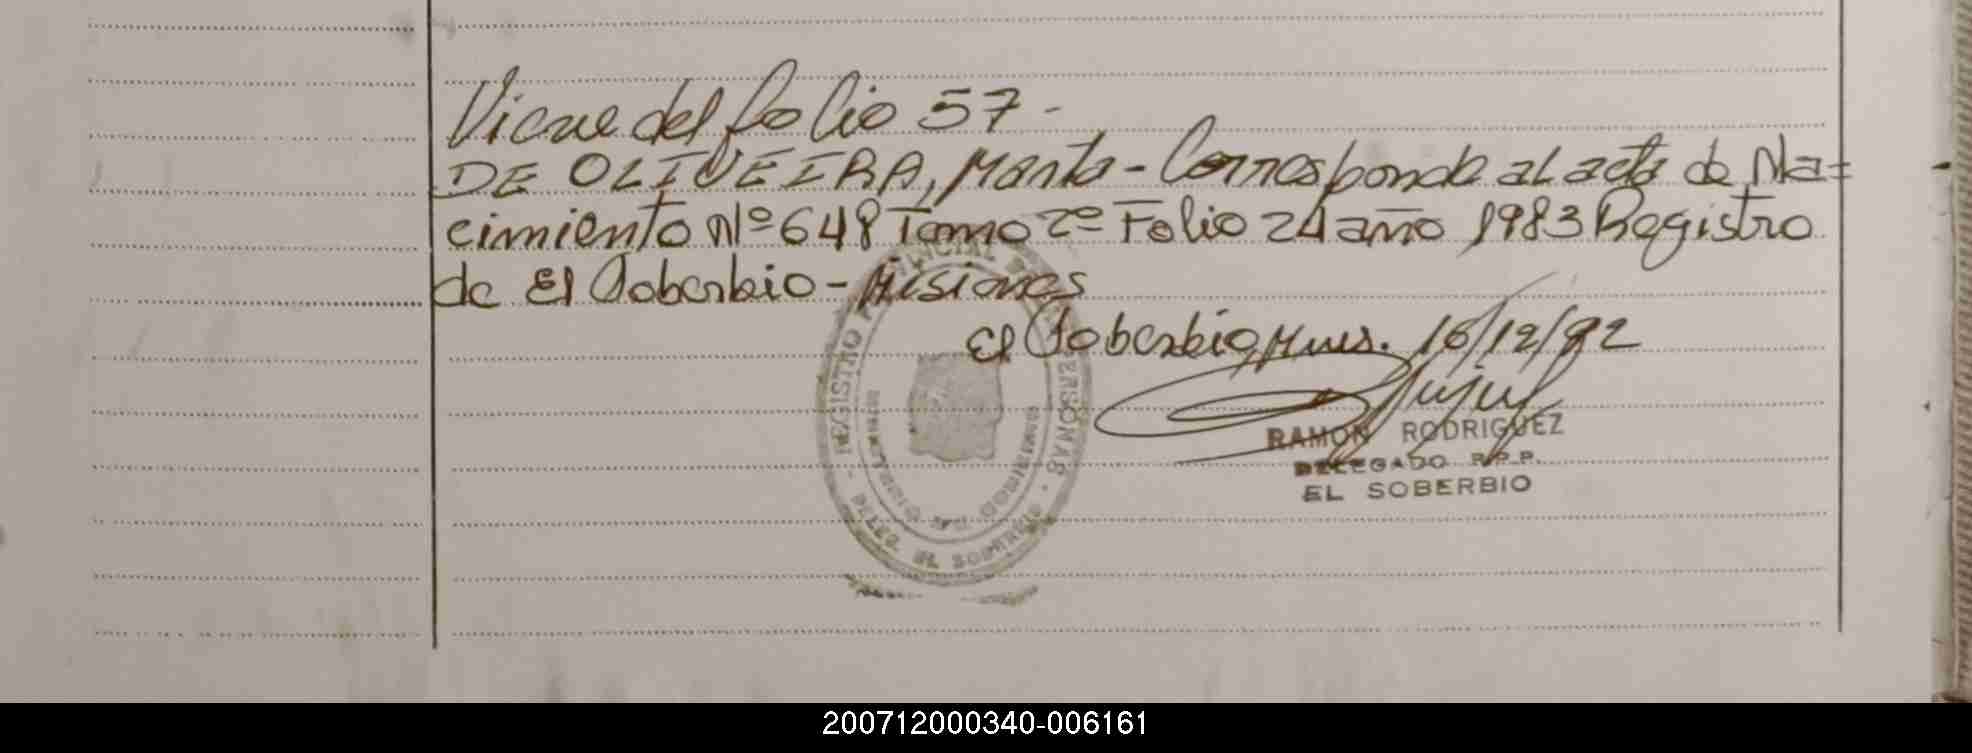 Viene del folio 57-
DE OLIVEIRA, Marta - Corresponde al acta de Na=
cimiento Nº 648 Tomo 2º Folio 24 año 1983 Registro
de El Soberbio - Misiones
El Soberbio, Mnes. 16/12/92
REGISTRO PROVINCIAL DE LAS PERSONAS
DELEG. EL SOBERBIO
RAMON RODRIGUEZ
DELEGADO R.P.P.
EL SOBERBIO
200712000340-006161